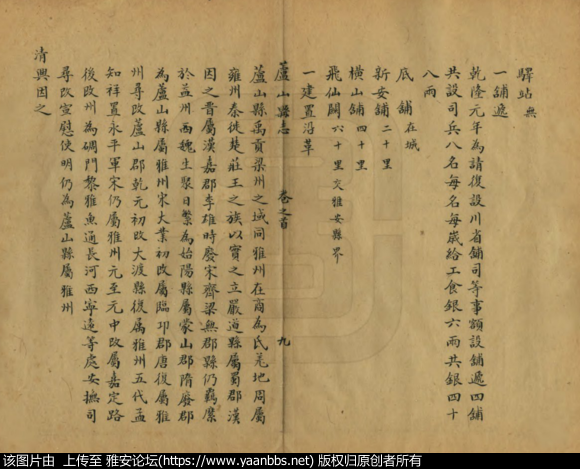 驛站無
一鋪遞
乾隆元年為請復設川省鋪司等事額設鋪遞四鋪
共設司兵八名每名每歲給工食銀六兩共銀四十
八兩
底鋪在城
新安鋪二十里
橫山鋪四十里
飛仙關六十里交雅安縣界
一建置沿革
蘆山縣志 卷之首 九
蘆山縣禹貢梁州之域同雅州在商為氐羌地周屬
雍州秦徙楚莊王之族以實之立嚴道縣屬蜀郡漢
因之晉屬漢嘉郡李雄時廢宋齊梁無郡縣仍羈縻
於益州西魏生聚日繁為始陽縣屬蒙山郡隋廢郡
為盧山縣屬雅州宋大業初改屬臨邛郡唐復屬雅
州尋改盧山郡乾元初改大渡縣復属雅州五代孟
知祥置永平軍宋仍屬雅州元至元中改屬嘉定路
後改州為碉門黎雅魚通長河西寧遠等處安撫司
尋改宣慰使明仍為蘆山縣屬雅州
清興因之
该图片由 上传至 雅安论坛(https://www.yaanbbs.net) 版权归原创者所有